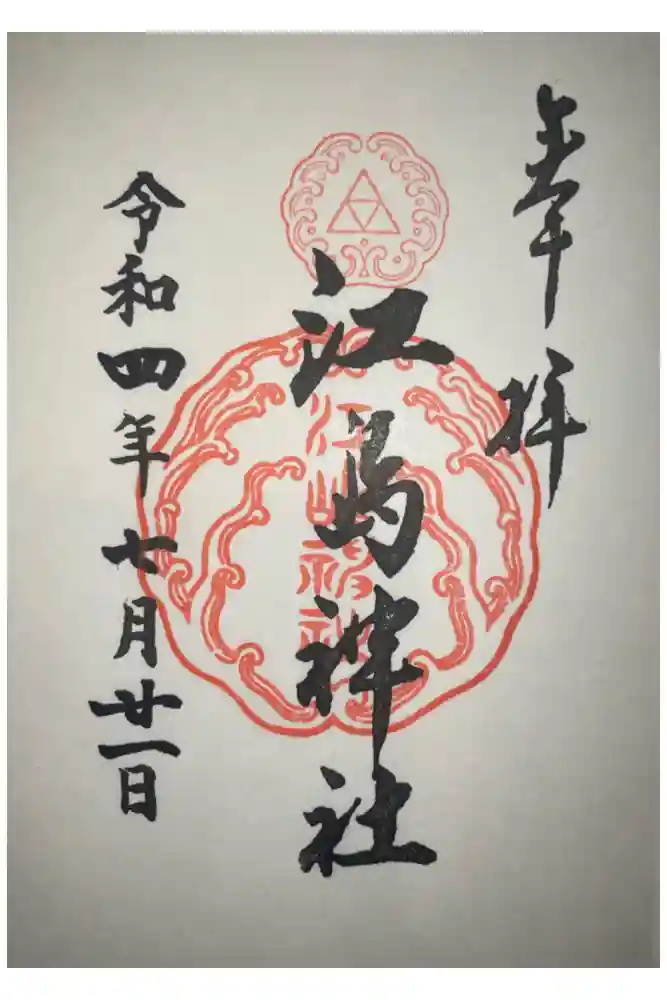 奉拝
江島神社
江島神社
令和四年七月廿一日